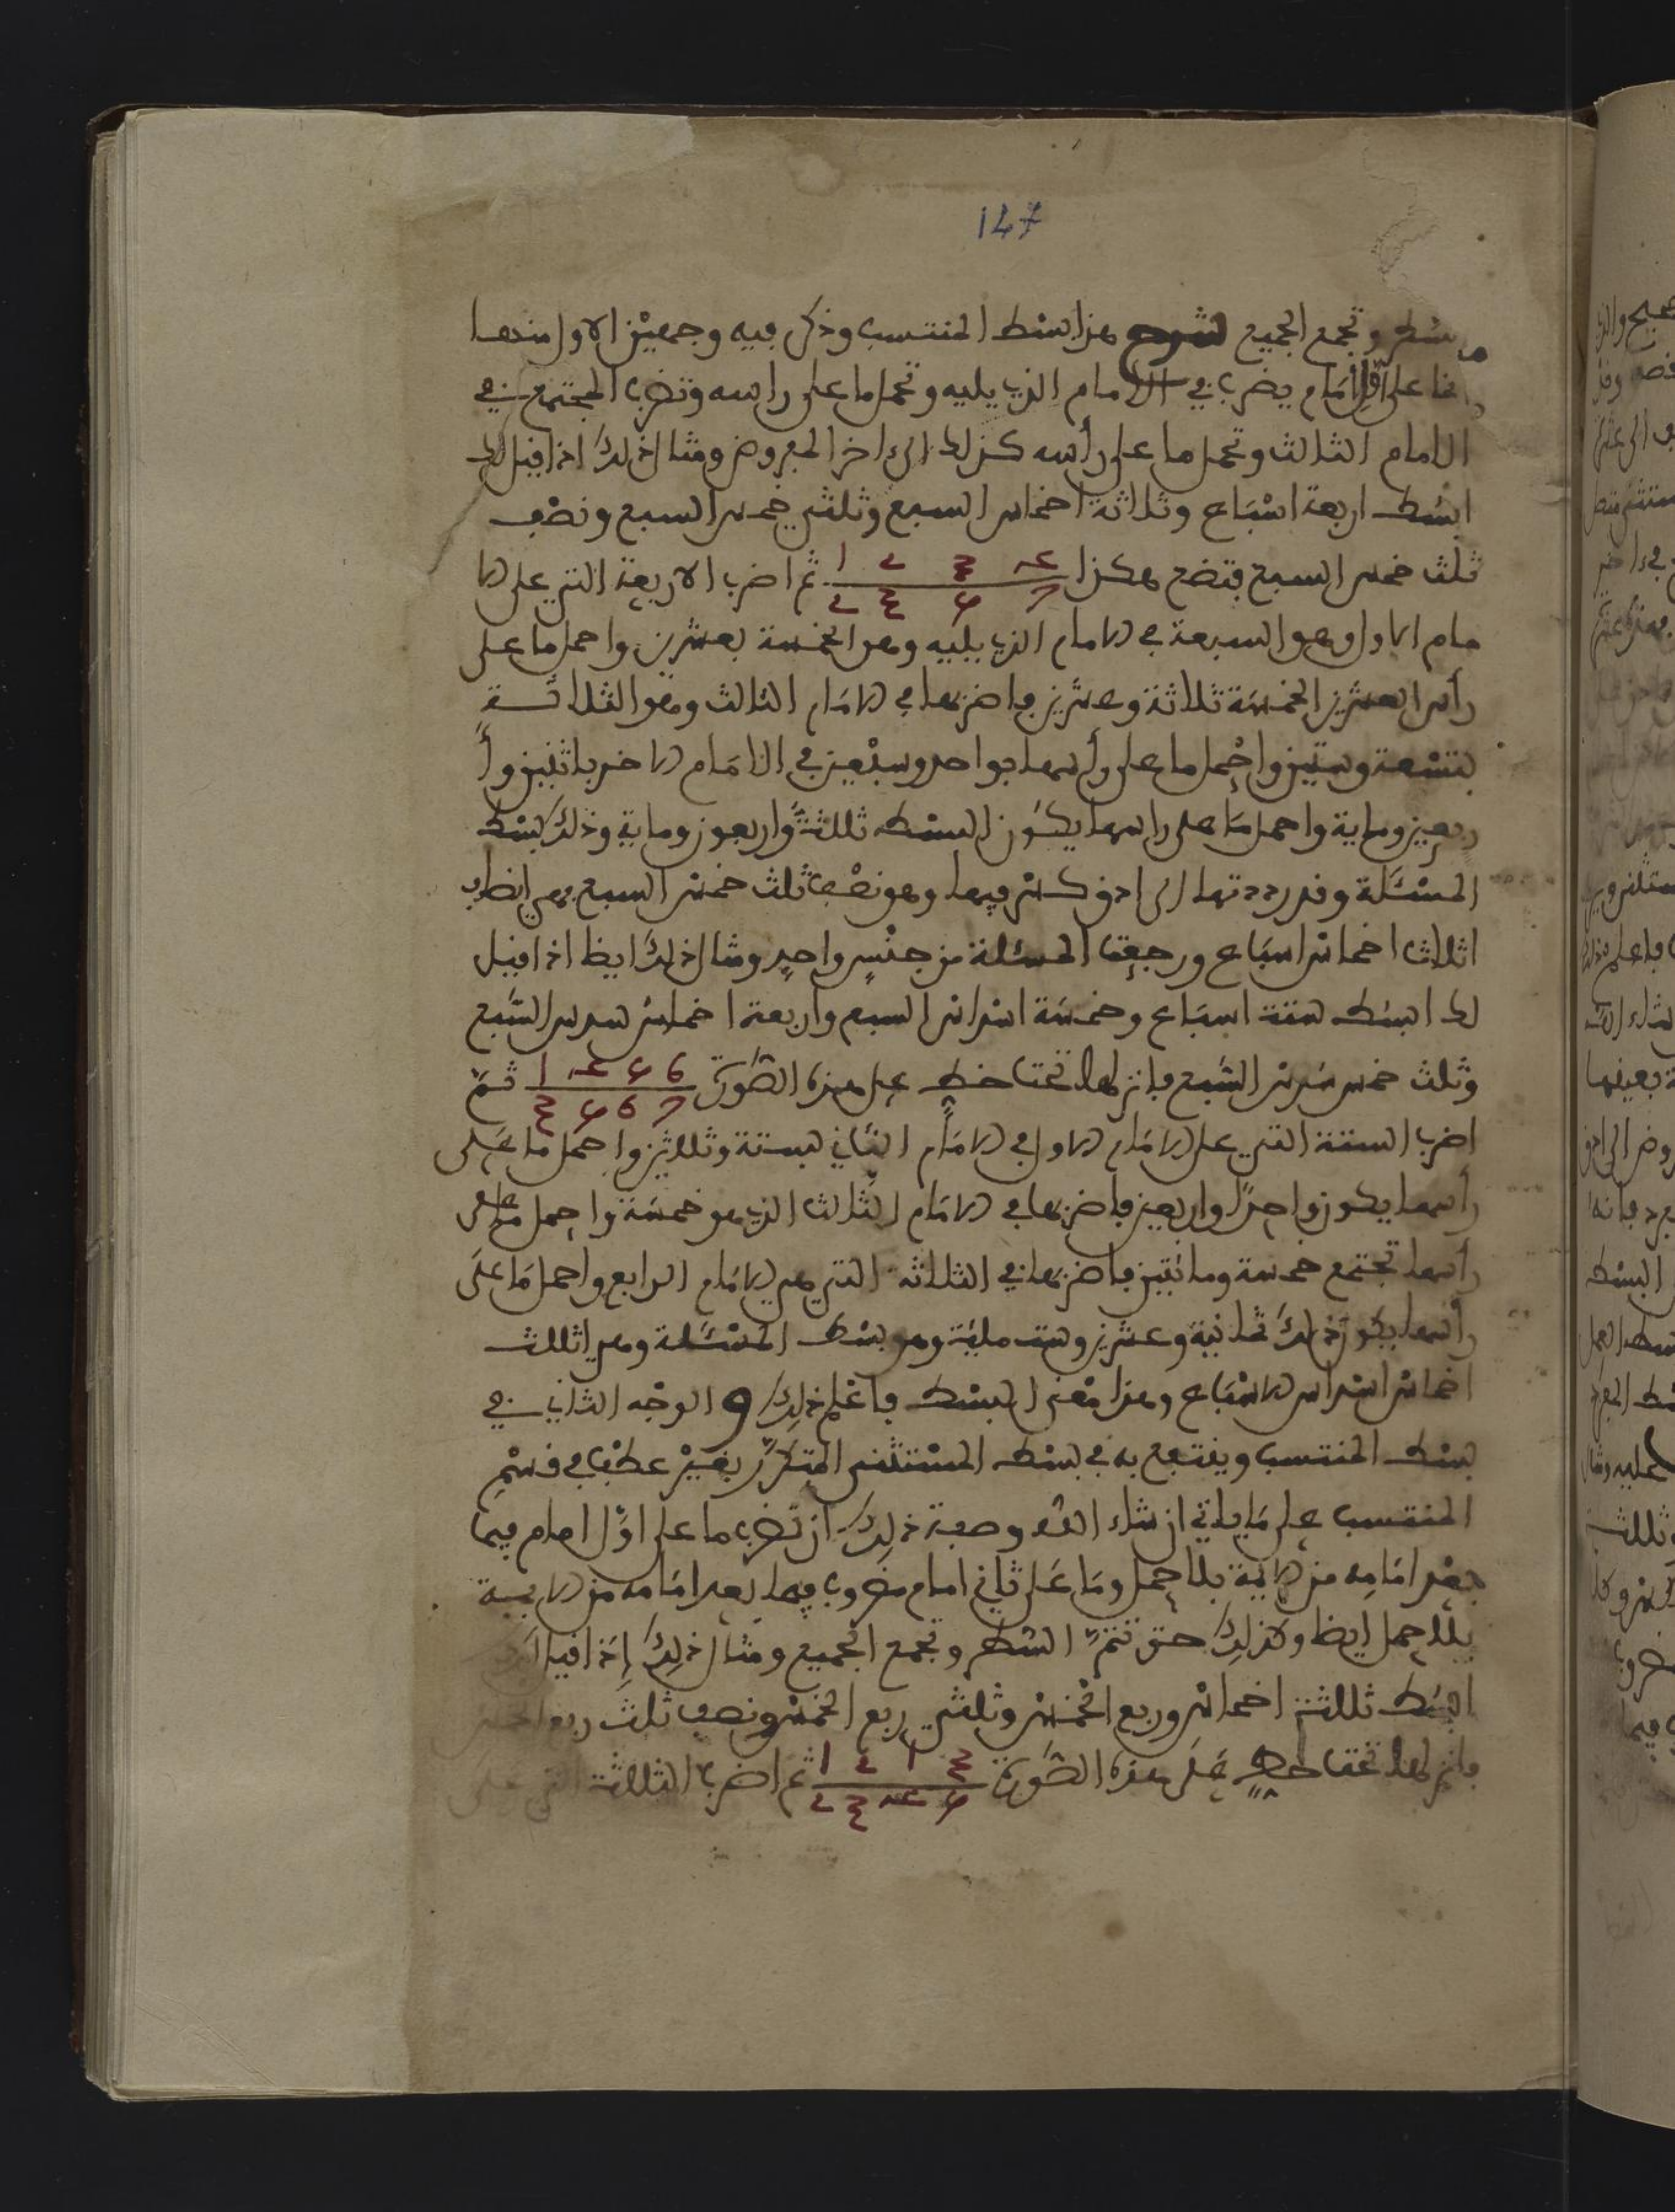 147
سطر وتجمع الجميع شرح هذا بسط المنتسب وذكر فيه وجهين الاول منهما
ما على اول امام يضرب في الامام الذي يليه وتحمل ما على راسه وتضرب المجتمع في
الامام الثالث وتحمل ما على رأسه كذلك الى اخر المعروض ومثال ذلك اذا قيل لك
ابسط اربعة اسباع وثلاثة اخماس السبع وثلثي خمس السبع ونصف
ثلث خمس السبع فتضع هكذا 1 2 3 4 / 2 3 5 7 ثم اضرب الاربعة التي على الا
مام الاول وهو السبعة في الامام الذي يليه وهو الخمسة بعشرين واحمل ما على
رأس العشرين الخمسة ثلاثة وعشرين فاضربها في الامام الثالث وهو الثلاثـــة
بتسعة وستين واحمل ما على رأسها بواحد وسبعين في الامام الاخر باثنين وأ
ربعين وماية واحمل ما على راسها يكون البسط ثلثة واربعون وماية وذلك بسط
المسئلة وقد رددتها الى ادق كسر فيها وهو نصف ثلث خمس السبع فهي انصاف
اثلاث اخماس اسباع ورجعت المسئلة من جنس واحد ومثال ذلك ايظا اذا قيل
لك ابسط ستة اسباع وخمسة اسداس السبع واربعة اخماس سدس السبع
وثلث خمس سدس السبع فانزلها تحت خط على هذه الصورة 1 4 5 6 / 3 5 6 7 ثم
اضرب الستة التي على الامام الاول في الامام الثاني بستة وثلاثين واحمل ما على
رأسها يكون واحدا واربعين فاضربها في الامام الثالث الذي هو خمسة واحمل ما على
رأسها تجتمع خمسة ومائتين فاضربها في الثلاثة التي هي الامام الرابع واحمل ما على
رأسها يكون ذلك ثمانية وعشرين وست ماية وهو بسط المسئلة وهي اثلاث
اخماس اسداس الاسباع وهذا معنى البسط فاعلم ذلك و الوجه الثاني في
بسط المنتسب وينتفع به في بسط المستثنى المتكرر بغير عطف في قسم
المنتسب على ما ياتي ان شاء الله وصفة ذلك ان تضرب ما على اول امام فيما
بعد امامه من الايمة بلا حمل وما على ثاني امام مضروب فيما بعد امامه من الايمة
بلا حمل ايظا وكذلك حتى تتم السطر وتجمع الجميع ومثال ذلك إذا قيل لك
ابسط ثلثة اخماس وربع الخمس وثلثي ربع الخمس ونصف ثلث ربع الخمس
فانزلها تحت خط على هذه الصورة 1 2 1 3 / 2 3 4 5 ثم اضرب الثلاثة التي على